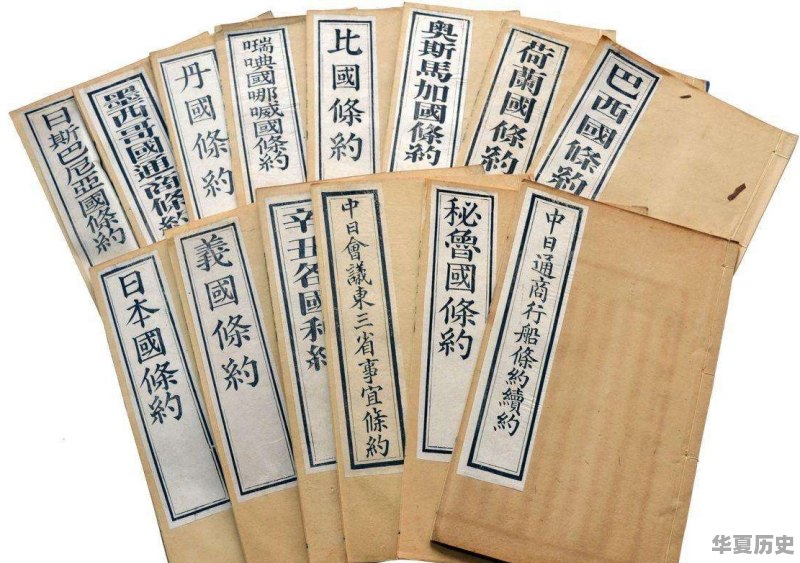 日斯巴尼亞國條約
墨西哥國通商條約
丹國條約
瑞㖭國哪喊國條約
比國條約
奥斯馬加國條約
荷蘭國條約
巴西國條約
日本國條約
義國條約
辛丑各國和約
中日會議東三省事宜條約
秘魯國條約
中日通商行船條約續約
华夏历史